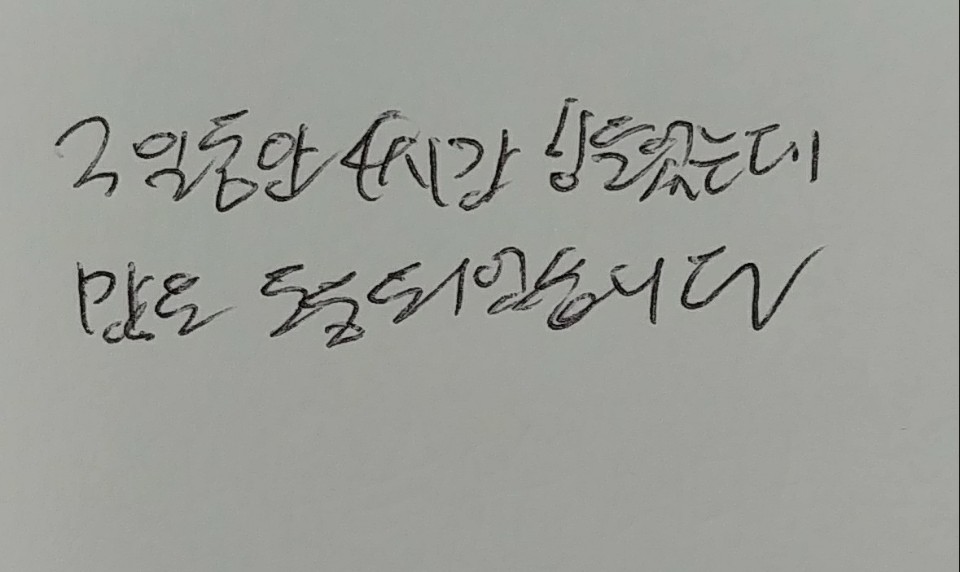 2일동안 4시간 힘들었는데
많은 도움되었습니다